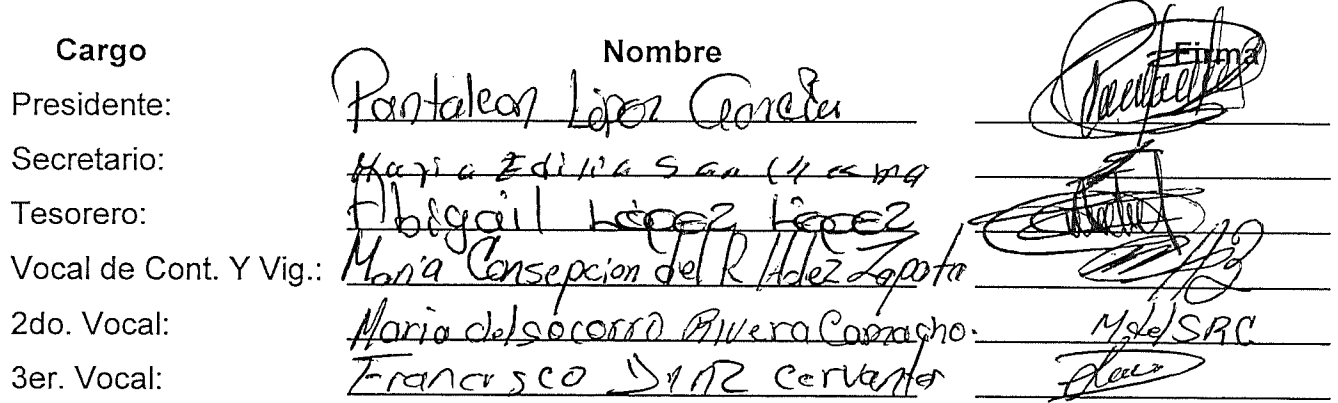 Cargo Nombre Firma
Presidente: Pantaleon López Garcia
Secretario: Maria Edilia San
Tesorero: Abigail López López
Vocal de Cont. Y Vig.: Maria Consepcion del R Hdez Zapata
2do. Vocal: Maria del socorro Rivera Camacho. M del SRC
3er. Vocal: Francisco Cervantes